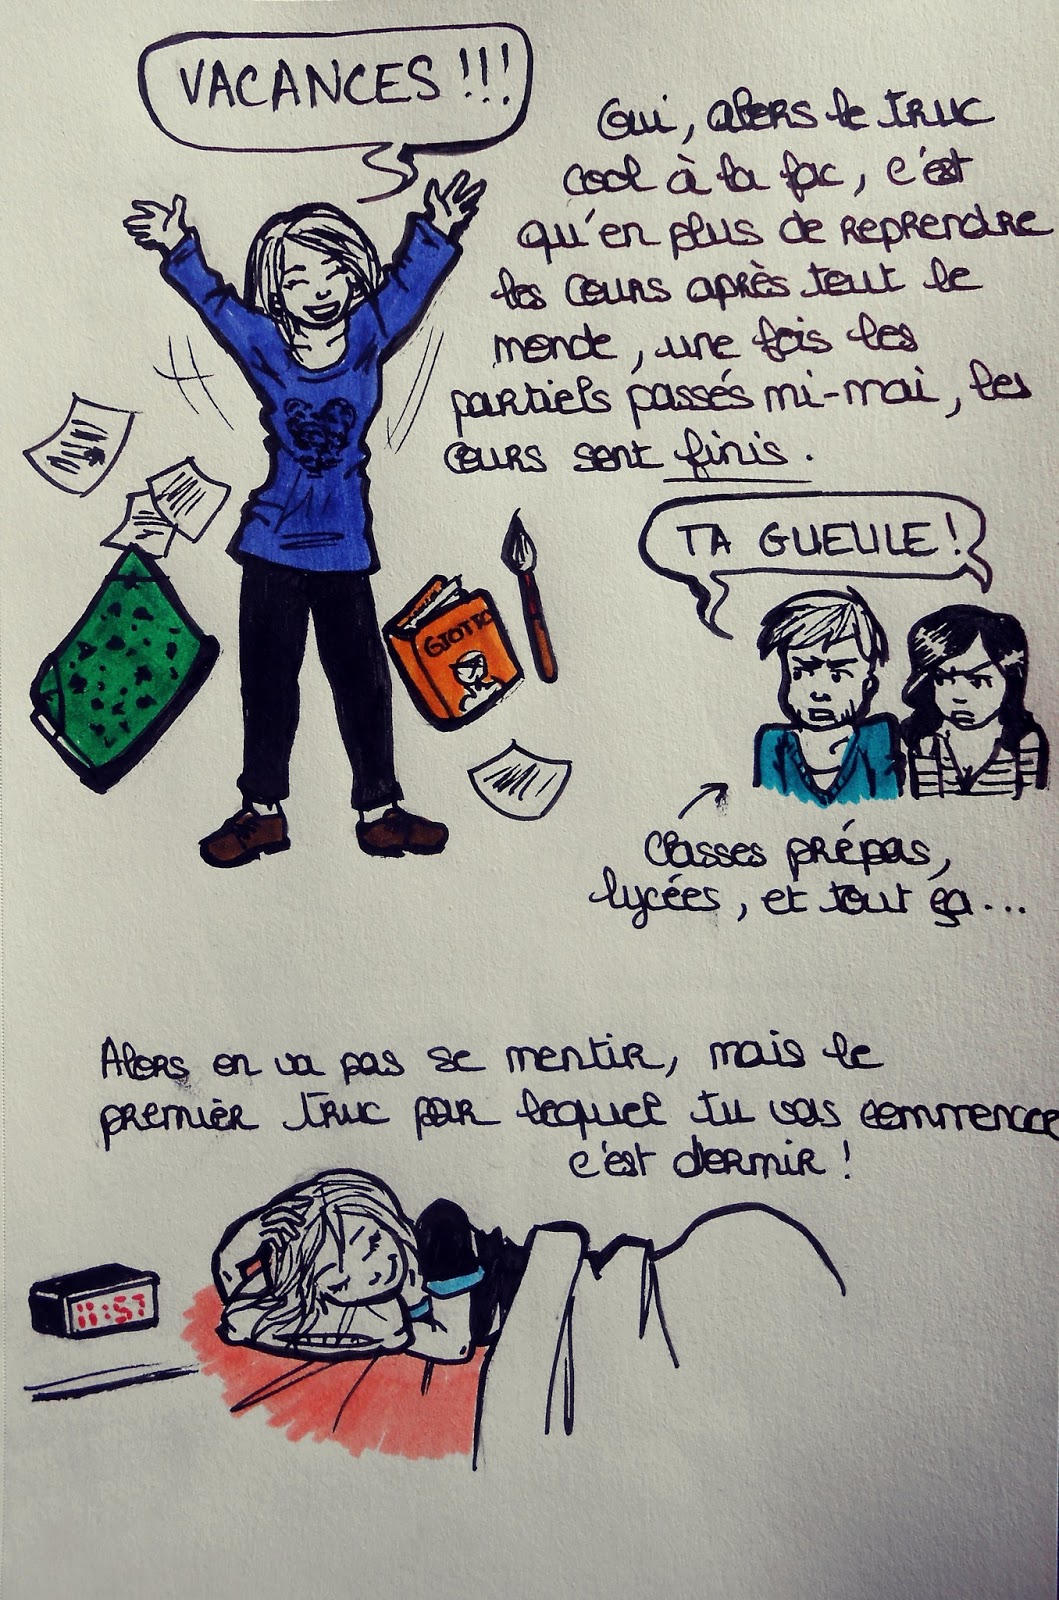 VACANCES !!!
Oui, alors le truc
cool à la fac, c'est
qu'en plus de reprendre
les cours après tout le
monde, une fois les
partiels passés mi-mai, les
cours sont finis.
TA GUEULE !
GIOTTO
Classes prépas,
lycées, et tout ça...
Alors on va pas se mentir, mais le
premier truc par lequel tu vas commencer
c'est dormir !
11:57